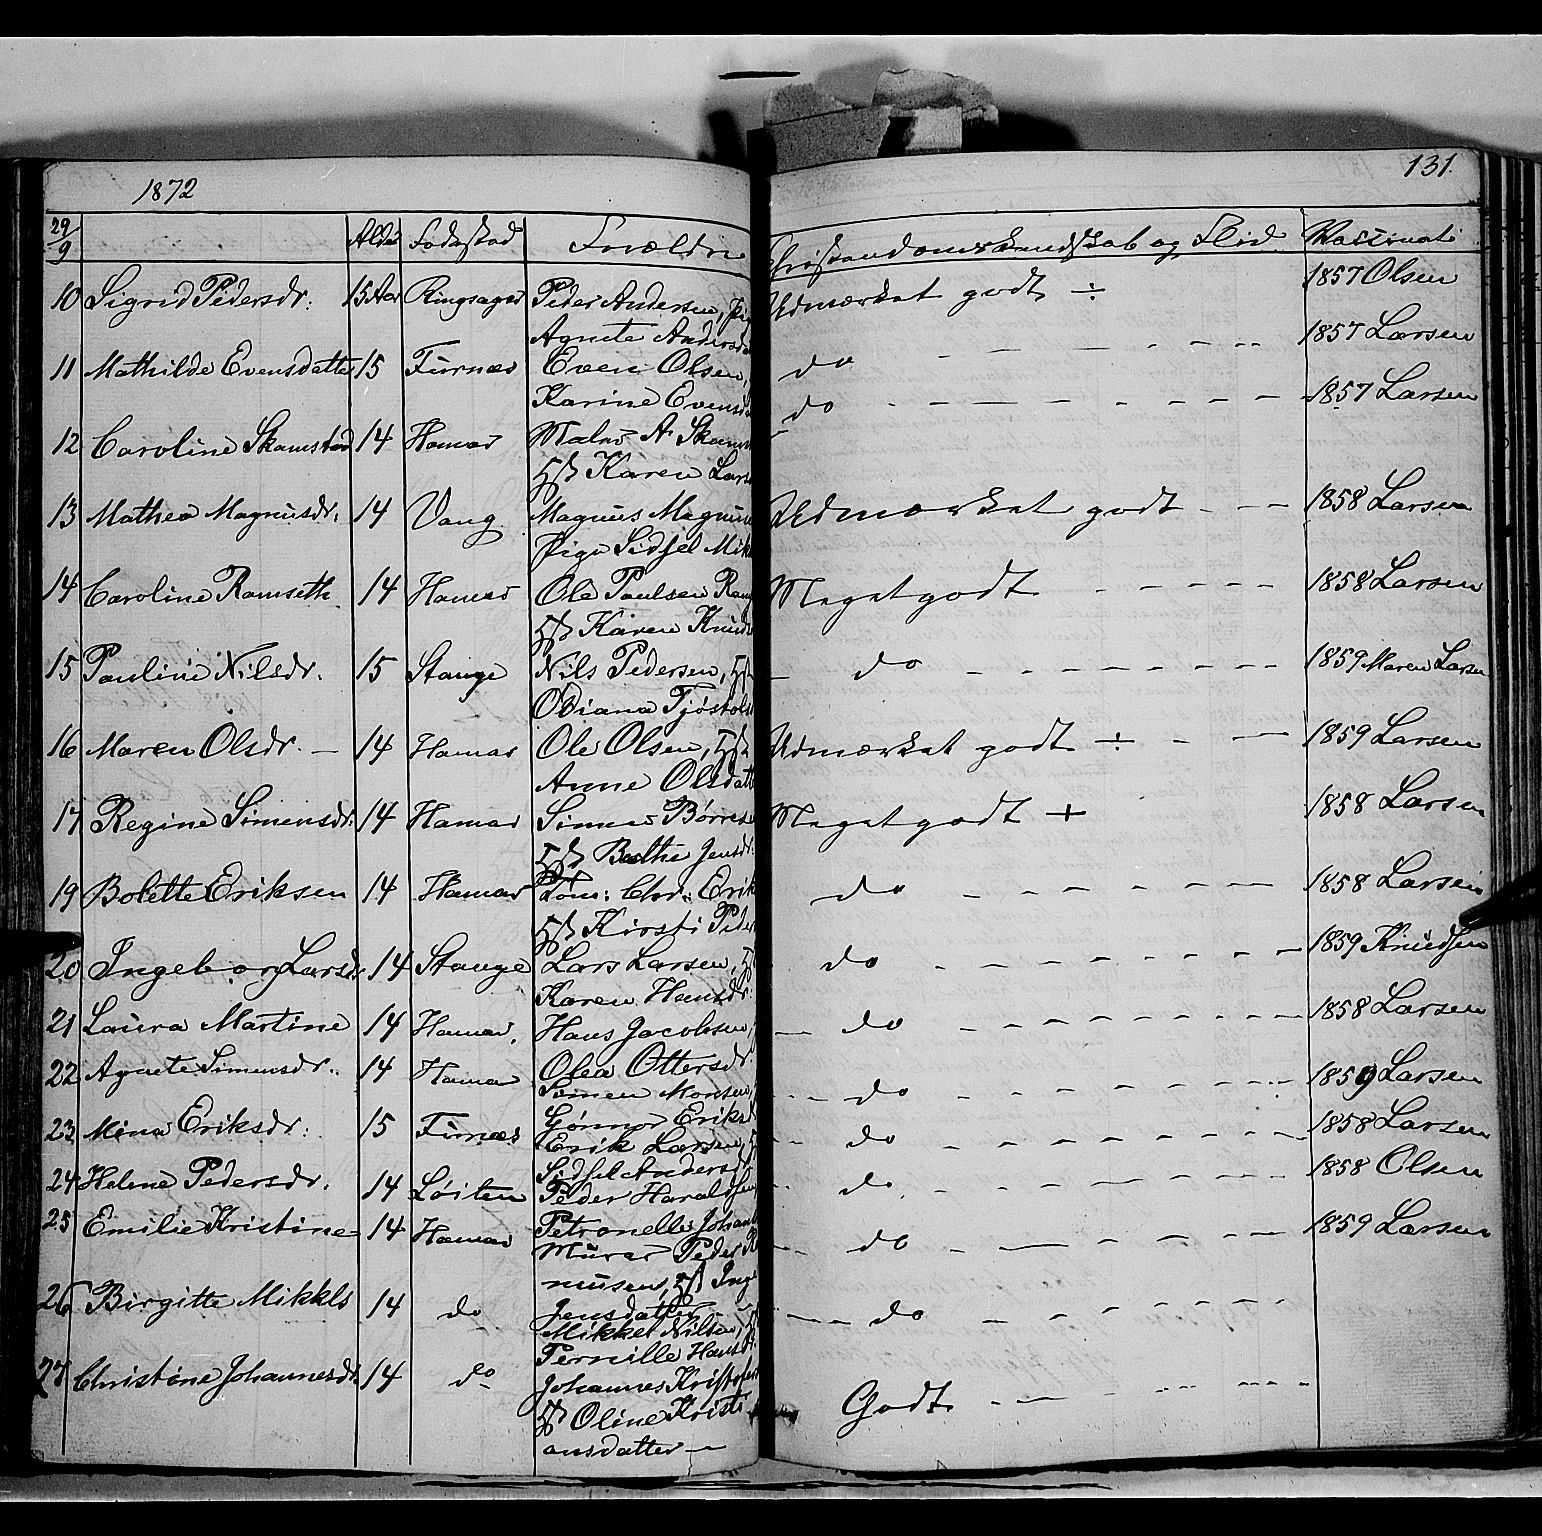 1872
131.
29/9 Alder Fødested Forældre Christendomskundskab og Flid Vassinati
10 Sigrid Pedersdr. 15 Aar Ringsager Peder Andersen, Pig Udmærket godt ÷ 1857 Olsen
Agnete Andersd
11 Mathilde Evensdatter 15 Furnæs Even Olsen, do 1857 Larsen
Karine Evensd
12 Caroline Skamstad 14 Hamar Maler A Skams do 1857 Larsen
Karen Lars
13 Mathea Magnusdr. 14 Vang Magnus Magnus Udmærket godt 1858 Larsen
Pige Sidsel Mik
14 Caroline Ramseth 14 Hamar Ole Paulsen Ram Meget godt 1858 Larsen
Karen Knuds
15 Pauline Nilsdr. 15 Stange Nils Pedersen, do 1859 Maren Larsen
Odiana Tjøstols
16 Maren Olsdr. 14 Hamar Ole Olsen, Udmærket godt ÷ 1859 Larsen
Anne Olsdatt
17 Regine Simensdr. 14 Hamar Simen Børres Meget godt + 1858 Larsen
Berthe Jensdr.
19 Bolette Eriksen 14 Hamar Chr. Erik do 1858 Larsen
Kirsti Peder
20 Ingeborg Larsdr 14 Stange Lars Larsen, do 1859 Knudsen
Karen Hansdr.
21 Laura Martine 14 Hamar. Hans Jacobsen, do 1858 Larsen
Olea Ottersdr
22 Agnete Simensdr. 14 Hamar Simen Monsen, do 1859 Larsen
Gønnor Eriks
23 Mina Eriksdr. 15 Furnæs Erik Larsen, do 1858 Larsen
Sidsel Andersd
24 Helene Pedersdr. 14 Løiten Peder Haraldsen, do 1858 Olsen
Petronelle Johan
25 Emilie Kristine 14 Hamar Murer Peder R do 1859 Larsen
musen, Inge
Jensdatter
26 Birgitte Mikkls 14 do Mikkel Nilsen, do
Pernille Hansdr.
27 Christine Johannesdr. 14 do Johannes Kristofers Godt
Oline Kristi
ansdatter